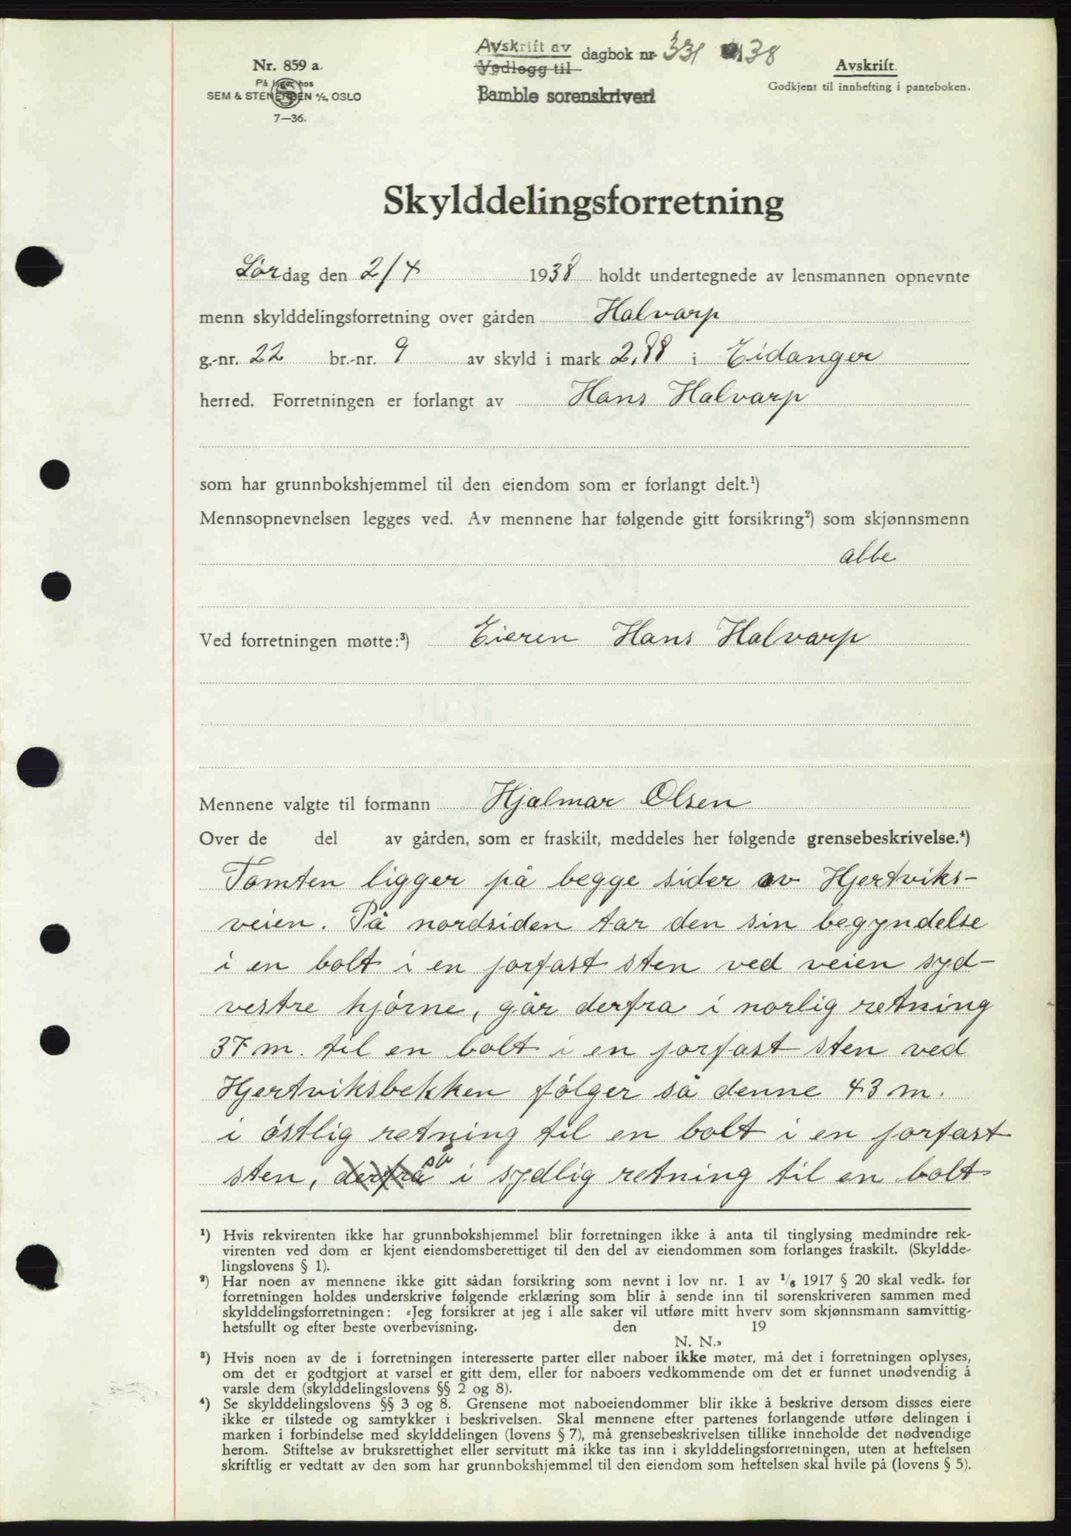 Nr. 859 a.
På lager hos
SEM & STENERSEN A/S, OSLO
7—36.
Avskrift av
Vedlegg til
dagbok nr 331 38
Bamble sorenskriveri
Avskrift.
Godkjent til innhefting i panteboken.
Skylddelingsforretning
Lørdag den 2/4 1938 holdt undertegnede av lensmannen opnevnte
menn skylddelingsforretning over gården Halvarp
g.-nr. 22 br.-nr. 9 av skyld i mark 2,88 i Eidanger
herred. Forretningen er forlangt av Hans Halvarp
som har grunnbokshjemmel til den eiendom som er forlangt delt.¹)
Mennsopnevnelsen legges ved. Av mennene har følgende gitt forsikring²) som skjønnsmenn
alle
Ved forretningen møtte:³) Eieren Hans Halvarp
Mennene valgte til formann Hjalmar Olsen
Over de del av gården, som er fraskilt, meddeles her følgende grensebeskrivelse.⁴)
Tomten ligger på begge sider av Hjertviks-
veien. På nordsiden tar den sin begyndelse
i en bolt i en jorfast sten ved veien syd-
vestre hjörne, går derfra i norlig retning
37 m. til en bolt i en jorfast sten ved
Hjertviksbekken fölger så denne 43 m.
i östlig retning til en bolt i en jorfast
sten, derfra så i sydlig retning til en bolt
¹) Hvis rekvirenten ikke har grunnbokshjemmel blir forretningen ikke å anta til tinglysing medmindre rek-
virenten ved dom er kjent eiendomsberettiget til den del av eiendommen som forlanges fraskilt. (Skyldde-
lingslovens § 1).
²) Har noen av mennene ikke gitt sådan forsikring som nevnt i lov nr. 1 av 1/6 1917 § 20 skal vedk. før
forretningen holdes underskrive følgende erklæring som blir å sende inn til sorenskriveren sammen med
skylddelingsforretningen: «Jeg forsikrer at jeg i alle saker vil utføre mitt hverv som skjønnsmann samvittig-
hetsfullt og efter beste overbevisning. den 19
N. N.»
³) Hvis noen av de i forretningen interesserte parter eller naboer ikke møter, må det i forretningen oplyses,
om det er godtgjort at varsel er gitt dem, eller for naboers vedkommende om det er funnet unødvendig å
varsle dem (skylddelingslovens §§ 2 og 8).
⁴) Se skylddelingslovens §§ 3 og 8. Grensene mot naboeiendommer blir ikke å beskrive dersom disses eiere
ikke er tilstede og samtykker i beskrivelsen. Skal mennene efter partenes forlangende utføre delingen i
marken i forbindelse med skylddelingen (lovens § 7), må grensebeskrivelsen tillike inneholde det nødvendige
herom. Stiftelse av bruksrettighet eller servitutt må ikke tas inn i skylddelingsforretningen, uten at heftelsen
skriftlig er vedtatt av den som har grunnbokshjemmel til den eiendom som heftelsen skal hvile på (lovens § 5).